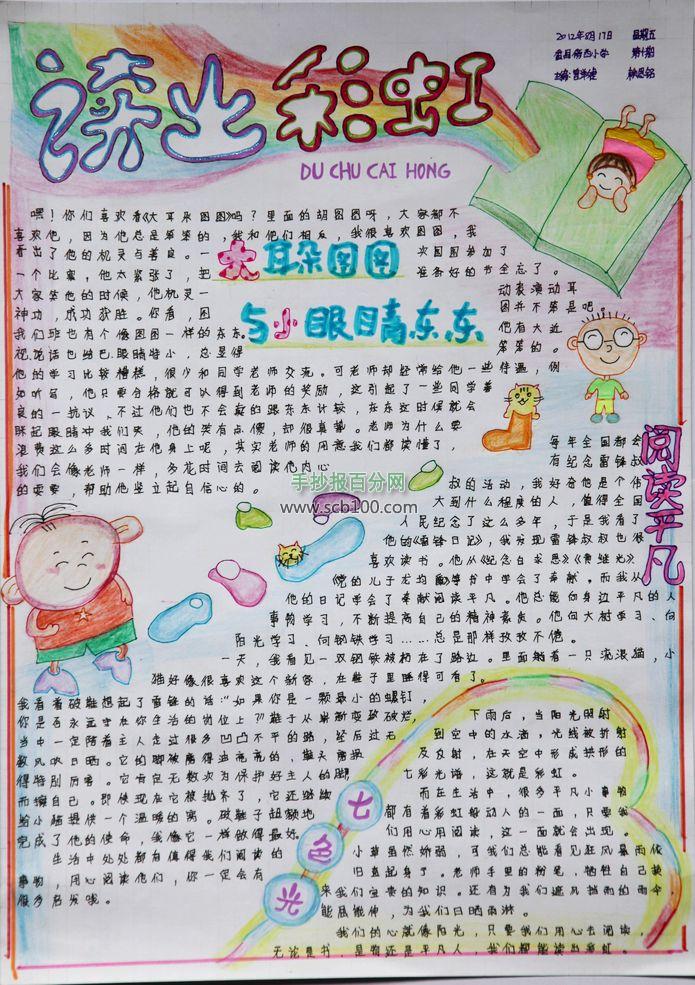 读出彩虹
DU CHU CAI HONG
2012年5月17日 星期五
嘿！你们喜欢看《大耳朵图图》吗？里面的胡图图呀，大家都不
喜欢他，因为他总是笨笨的，我和他们相反，我很喜欢图图，我
看出了他的机灵与善良。一
次图图参加了
一个比赛，他太紧张了，把
准备好的书全忘了。
大家笑他的时候，他机灵一
动表演动耳
神功，成功获胜。你看，图
图并不笨是吧
我们班也有个像图图一样的东东。
他有大近
视，说话也结巴，眼睛特小，总显得
笨笨的。
他的学习比较糟糕，很少和同学老师交流。可老师却经常给他一些待遇，例
如听写，他只要分格就可以得到老师的奖励，这引起了一些同学善
良的一抗议、不过他们也不会真的跟东东计较，在东这时候就会
眯起眼睛冲我们笑，他的笑有点傻，却很真挚。老师为什么要
浪费这么多时间在他身上呢，其实老师的用意我们都读懂了，
我们会像老师一样，多花时间去阅读他内心
的需要，帮助他坚立起自信心的。
大耳朵图图
与小眼睛东东
手抄报百分网
www.scb100.com
阅读平凡
每年全国都会
有纪念雷锋叔
叔的活动，我好奇他是个伟
大到什么程度的人，值得全国
人民纪念了这么多年，于是我看了
他的《雷锋日记》，我发现雷锋叔叔也很
喜欢读书。他从《纪念白求恩》《黄继光》
《党的儿子龙均爵》等书中学会了奉献。而我从
他的日记学会了奉献阅读平凡。他总能向身边平凡的人
事物学习，不断提高自己的精神素质。他向大树学习、向
阳光学习、向钢铁学习……总是那样孜孜不倦。
一天，我看见一双钢铁被扔在了路边。里面躺着一只流浪猫，小
猫好像很喜欢这个新家，在鞋子里睡得可香了。
我看着破鞋想起了雷锋的话：“如果你是一颗最小的螺钉，
你是否永远守在你生活的岗位上？”鞋子从崭新变致破烂，
当中一定陪着主人走过很多凹凸不平的路，经历过无
数风吹日晒。它的脚被磨得油亮亮的，鞋头磨损
得特别厉害。它肯定无数次为保护好主人的脚
而磨自己。即使现在它被抛弃了，它还继续
给小猫提供一个温暖的窝。破鞋子超额地
完成了他的使命，我像它一样做得最好。
生活中处处都有值得我们阅读的
事物，用心阅读他们，你一定会有
很多启发哦。
七色光
下雨后，当阳光照射
到空中的水滴，光线被折射
及反射，在天空中形成拱形的
七彩光谱，这就是彩虹。
而在生活中，很多平凡小事物
都有着彩虹般动人的一面，只要我
们用心用阅读，这一面就会出现。
小草虽然娇弱，可我们总能看见狂风暴雨后
旧直起身了。老师手里的粉笔，牺牲自己换
来我们宝贵的知识。还有为我们遮风挡雨的雨伞
能屈能伸，为我们日晒雨淋。
我们的心就像阳光，只要我们用心去阅读，
无论是书，是物还是平凡人，我们都能读出彩虹。